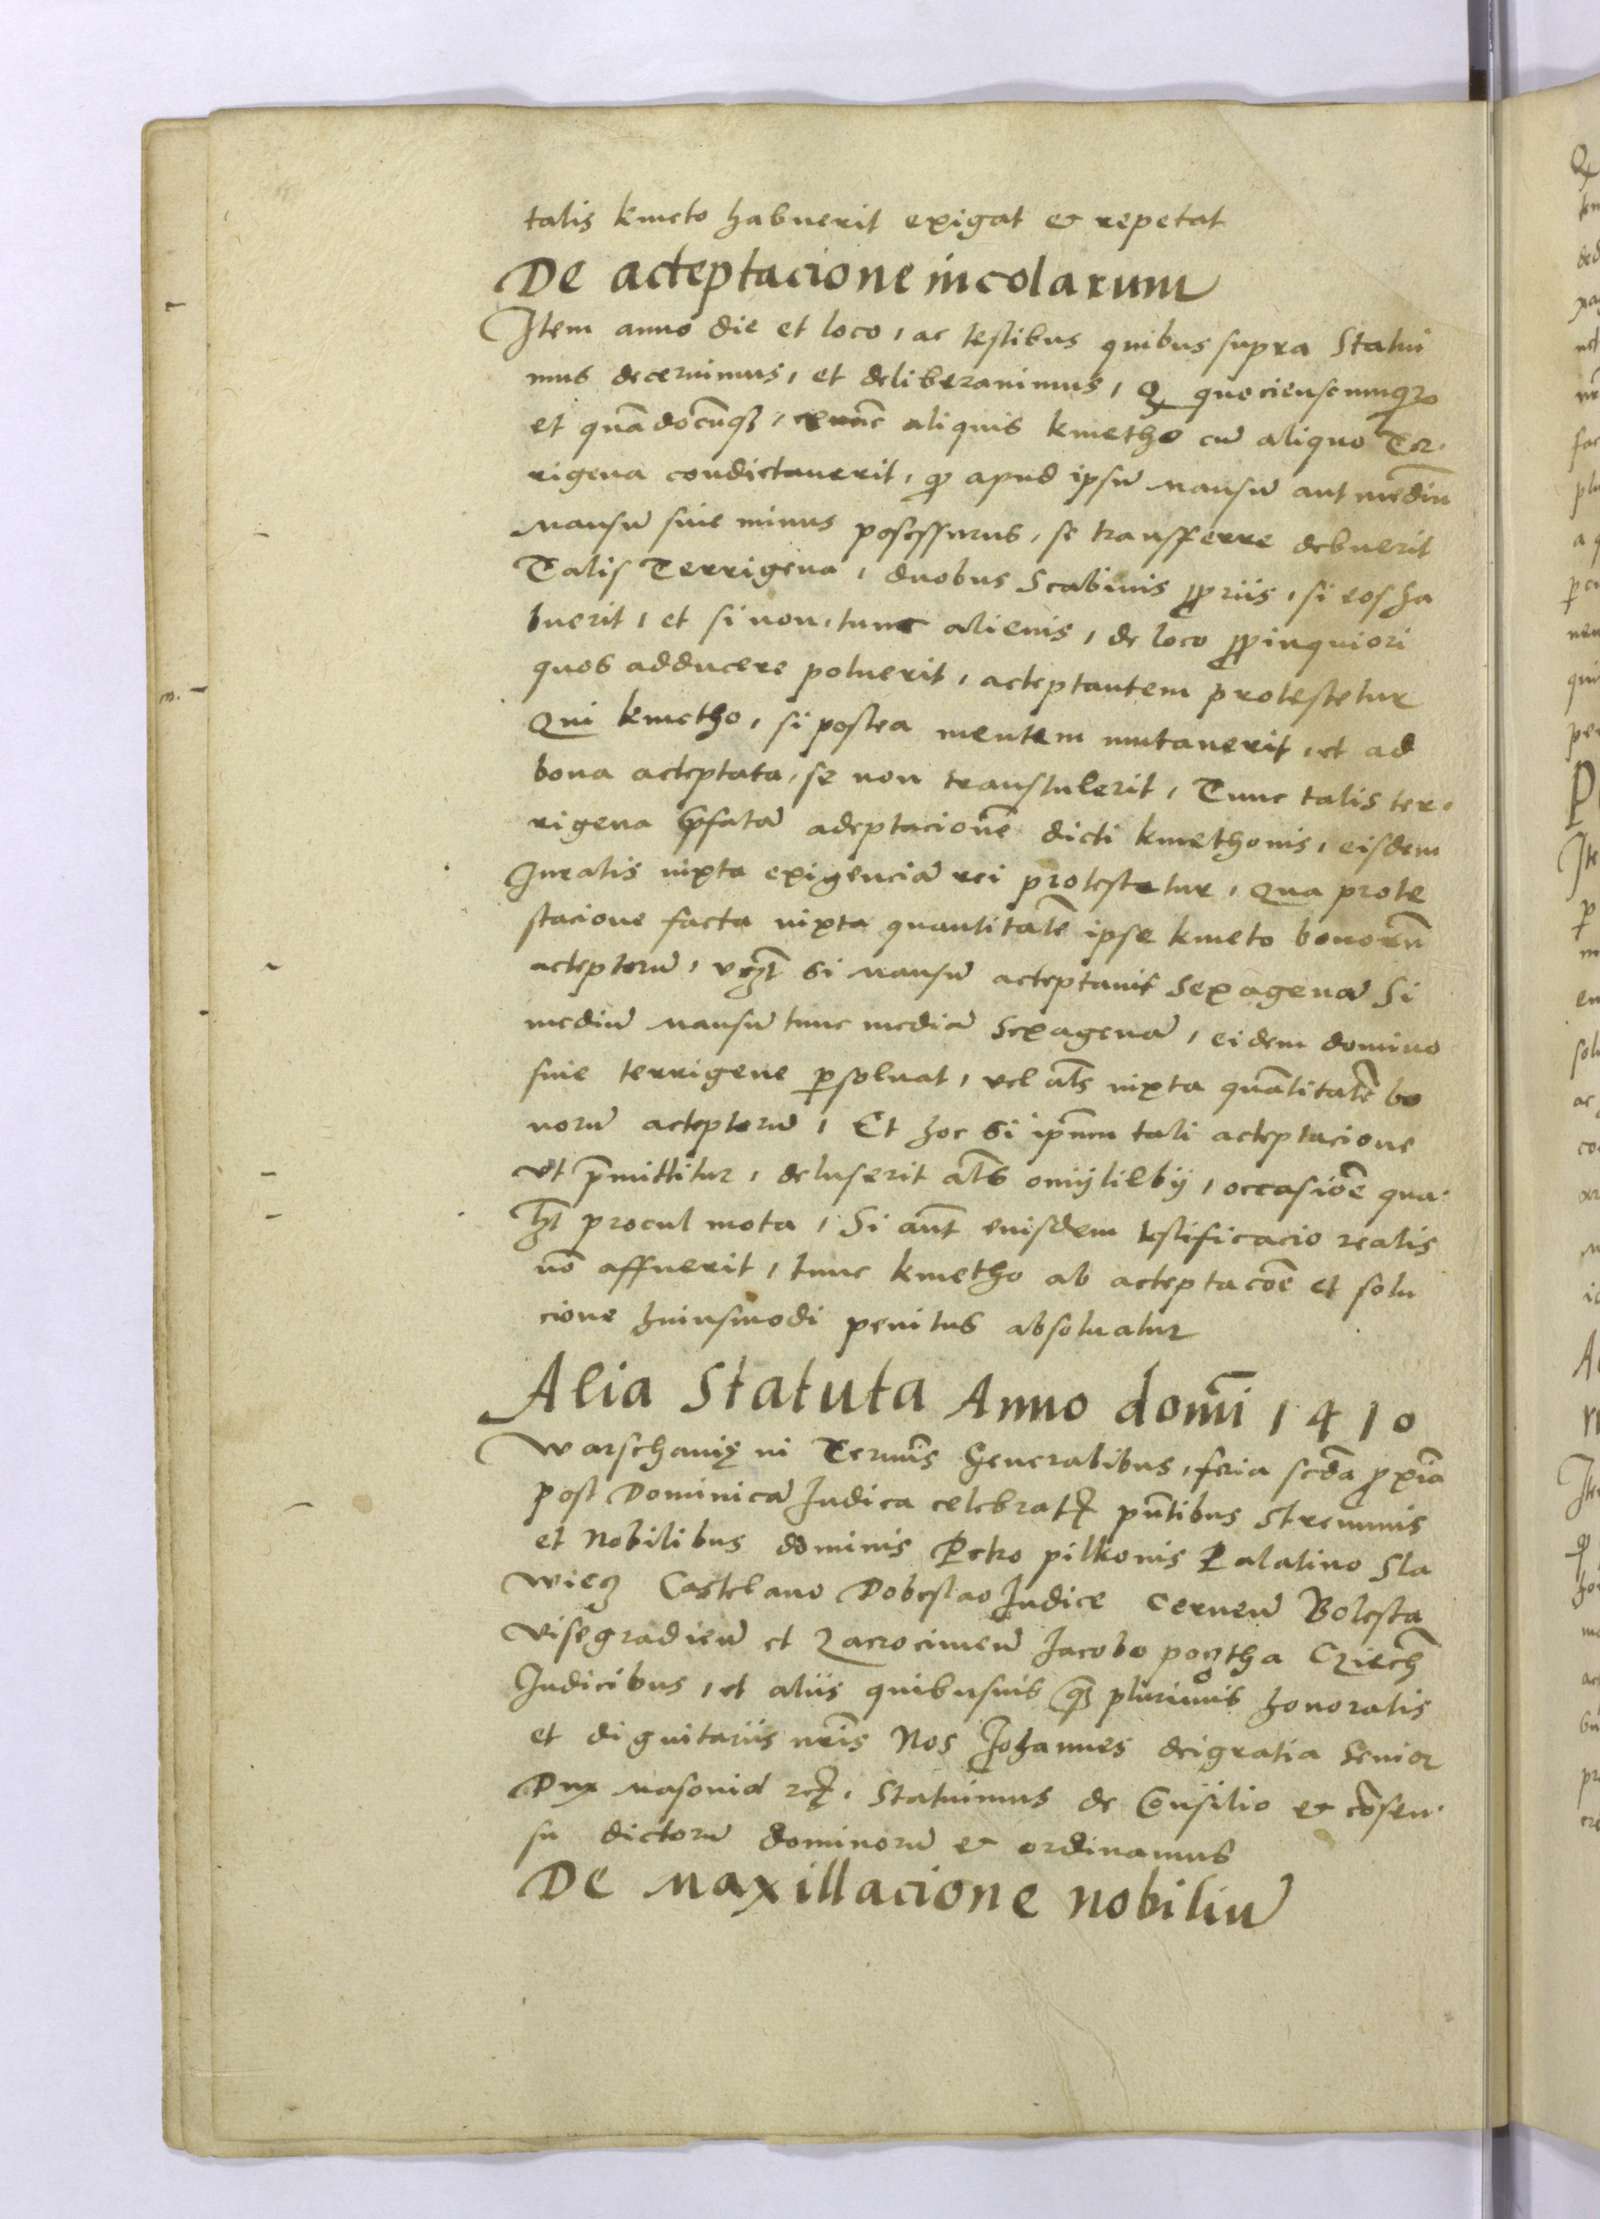 talis kmeto habuerit exigat & repetat
De acceptacione incolarum
Item anno die et loco, ac testibus quibus supra Statui
mus decernimus, et deliberauimus, Q quocienscunq3
et quādocūq3, aliquis kmetho cū aliquo Ter-
rigena condictauerit, q apud ipsū mansū aut mediū
mansū siue minus posessurus, se transfferre debuerit
Talis Terrigena, duobus Scabinis ꝓpriis, si eos ha
buerit, et si non, tunc alienis, de loco ꝓpinquiori
quos adducere potuerit, acceptantem protestetur
Qui kmetho, si postea mentem mutauerit, et ad
bona acceptata, se non transtulerit, Tunc talis ter-
rigena p̄fatā adeptacionē dicti kmethonis, eisdem
Iuratis iuxta exigenciā rei protestetur, Qua prote
stacione facta iuxta quantitatē ipse kmeto bonorū
acceptorū, vz̄ Si mansū acceptauit Sexagenā Si
mediū mansū tunc mediā Sexagenā, eidem domino
siue terrigene ꝑsoluat, vel al̄s iuxta quātitatē bo
norū acceptorū, Et hoc Si ip̄um tali acceptacione
vt p̄mittitur, deluserit al̄s omijlilbij, occasiōe qua-
lz̄ procul mota, Si aūt euisdem testificacio realis
nō affuerit, tunc kmetho ab acceptacōe et solu
cione huiusmodi penitus absoluatur
Alia Statuta Anno domī 1410
Warschauię in Termīs Generalibus, feria scd̄a ꝓxīa
post Dominicā Iudica celebratꝭ pn̄tibus Strenuuis
et Nobilibus dominis Petro pilkonis Palatino Sla
wiecz Castelano Dobeslao Iudice Cernen̄ Bolesta
Visegradien̄ et Zacrocimen̄ Jacobo pogtha Cziech̄
Iudicibus, et aliis quibusuis q̄3 plurimis honoratis
et dignitariis nr̄is Nos Johannes deigratia Senior
Dux Masouiæ rcꝭ, Statuimus de Consilio & cōsen-
su dictorū dominorū & ordinamus
De Maxillacione nobiliū